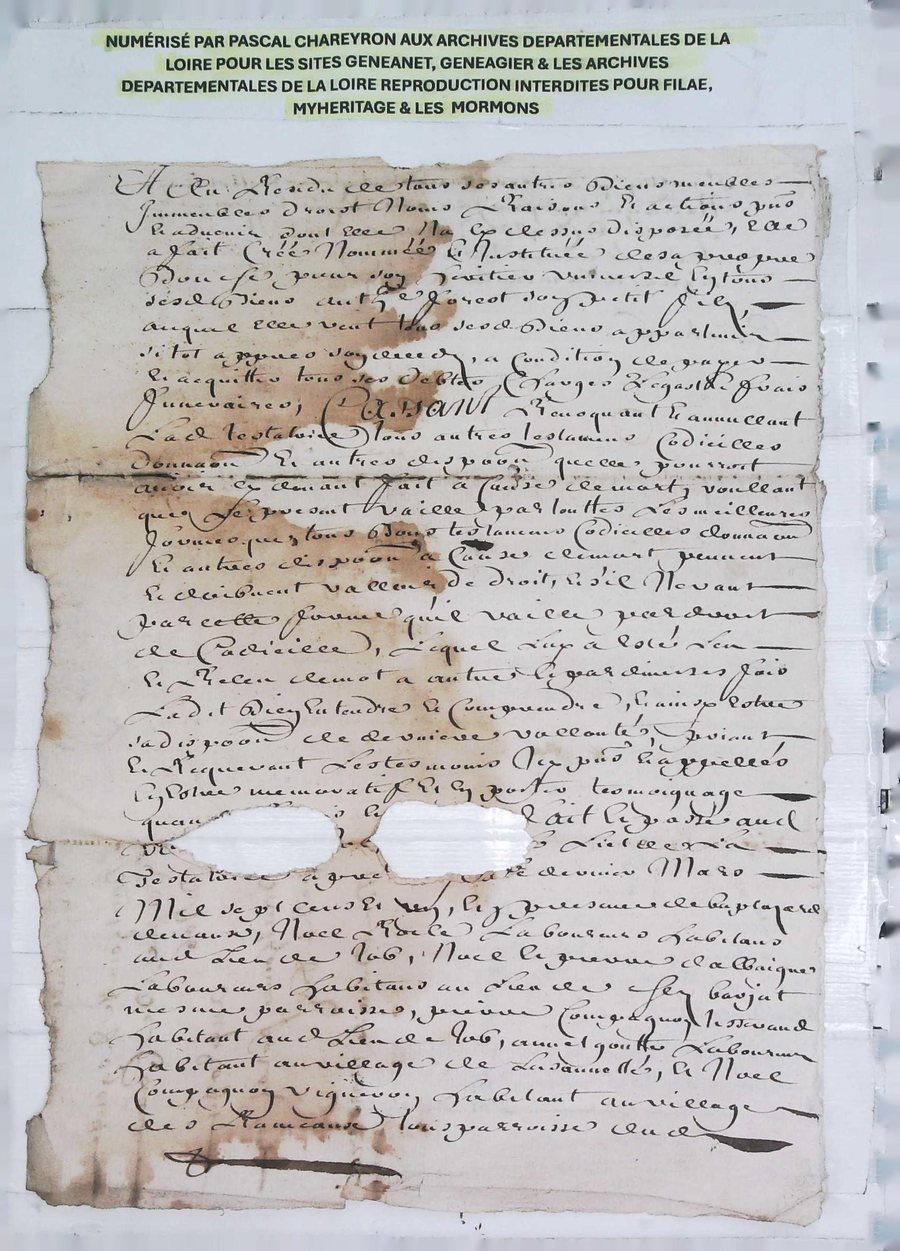 NUMÉRISÉ PAR PASCAL CHAREYRON AUX ARCHIVES DEPARTEMENTALES DE LA
LOIRE POUR LES SITES GENEANET, GENEAGIER & LES ARCHIVES
DEPARTEMENTALES DE LA LOIRE REPRODUCTION INTERDITES POUR FILAE,
MYHERITAGE & LES MORMONS
Et Au Residu de tous ses autres Biens meubles
Immeubles Droist Noms Raisons Et actions pns
Et aduenir dont Elle Na cy dessus disposée, Elle
a fait Créé Nommée Et Instituée de sa propre
Bouche pour son heritier vniuersel En tous
sesd Biens forest son petit fils
auquel Elle veut tous sesd Biens appartenir
sitot appres son deced, a Condition de payer
Et acquitter tous ses debtes Charges Legats Et frais
funeraires, Cassant Reuoquant Et annullant
Lad Testatrice tous autres testamens Codicilles
donnaon Et autres dispoon quelle pourroit
auoir cy deuant fait a Cause de mort, voullant
que Le present vaille par touttes Les meilleures
formes que tous Bons testamens Codicilles donnaon
Et autres dispoon a Cause de mort peuuent
Et doibuent valloir de droit, Et s'il Ne vaut
par cette forme qu'il vaille par droit
de Codicille, Lequel Luy a Esté Leu
Et Releu de mot a autre Et par diuerses fois
La dit Bien Entendre Et Comprendre, Et ainsy Estre
sa dispoon de derniere vollonté, priant
Et Requerant Les tesmoins Icy pns Et appellés
En Estre memoratif Et En porter tesmoignage
quan fait Et passé aud
Lict de La
Testatrice dernier Mars
Mil sept Cens Et Vn, En presence de
Noel Laboureurs habitans
aud Lieu de Job, Noel Et pierre dalbaigue
Laboureurs habitans au Lieu de
mesme parroisse, pierre Compagnon tisserand
habitant aud Lieu de Job, annet goutte Laboureur
habitant au village de Et Noel
Compagnon vigneron habitant au village
des Rameaux tous parroisse dud